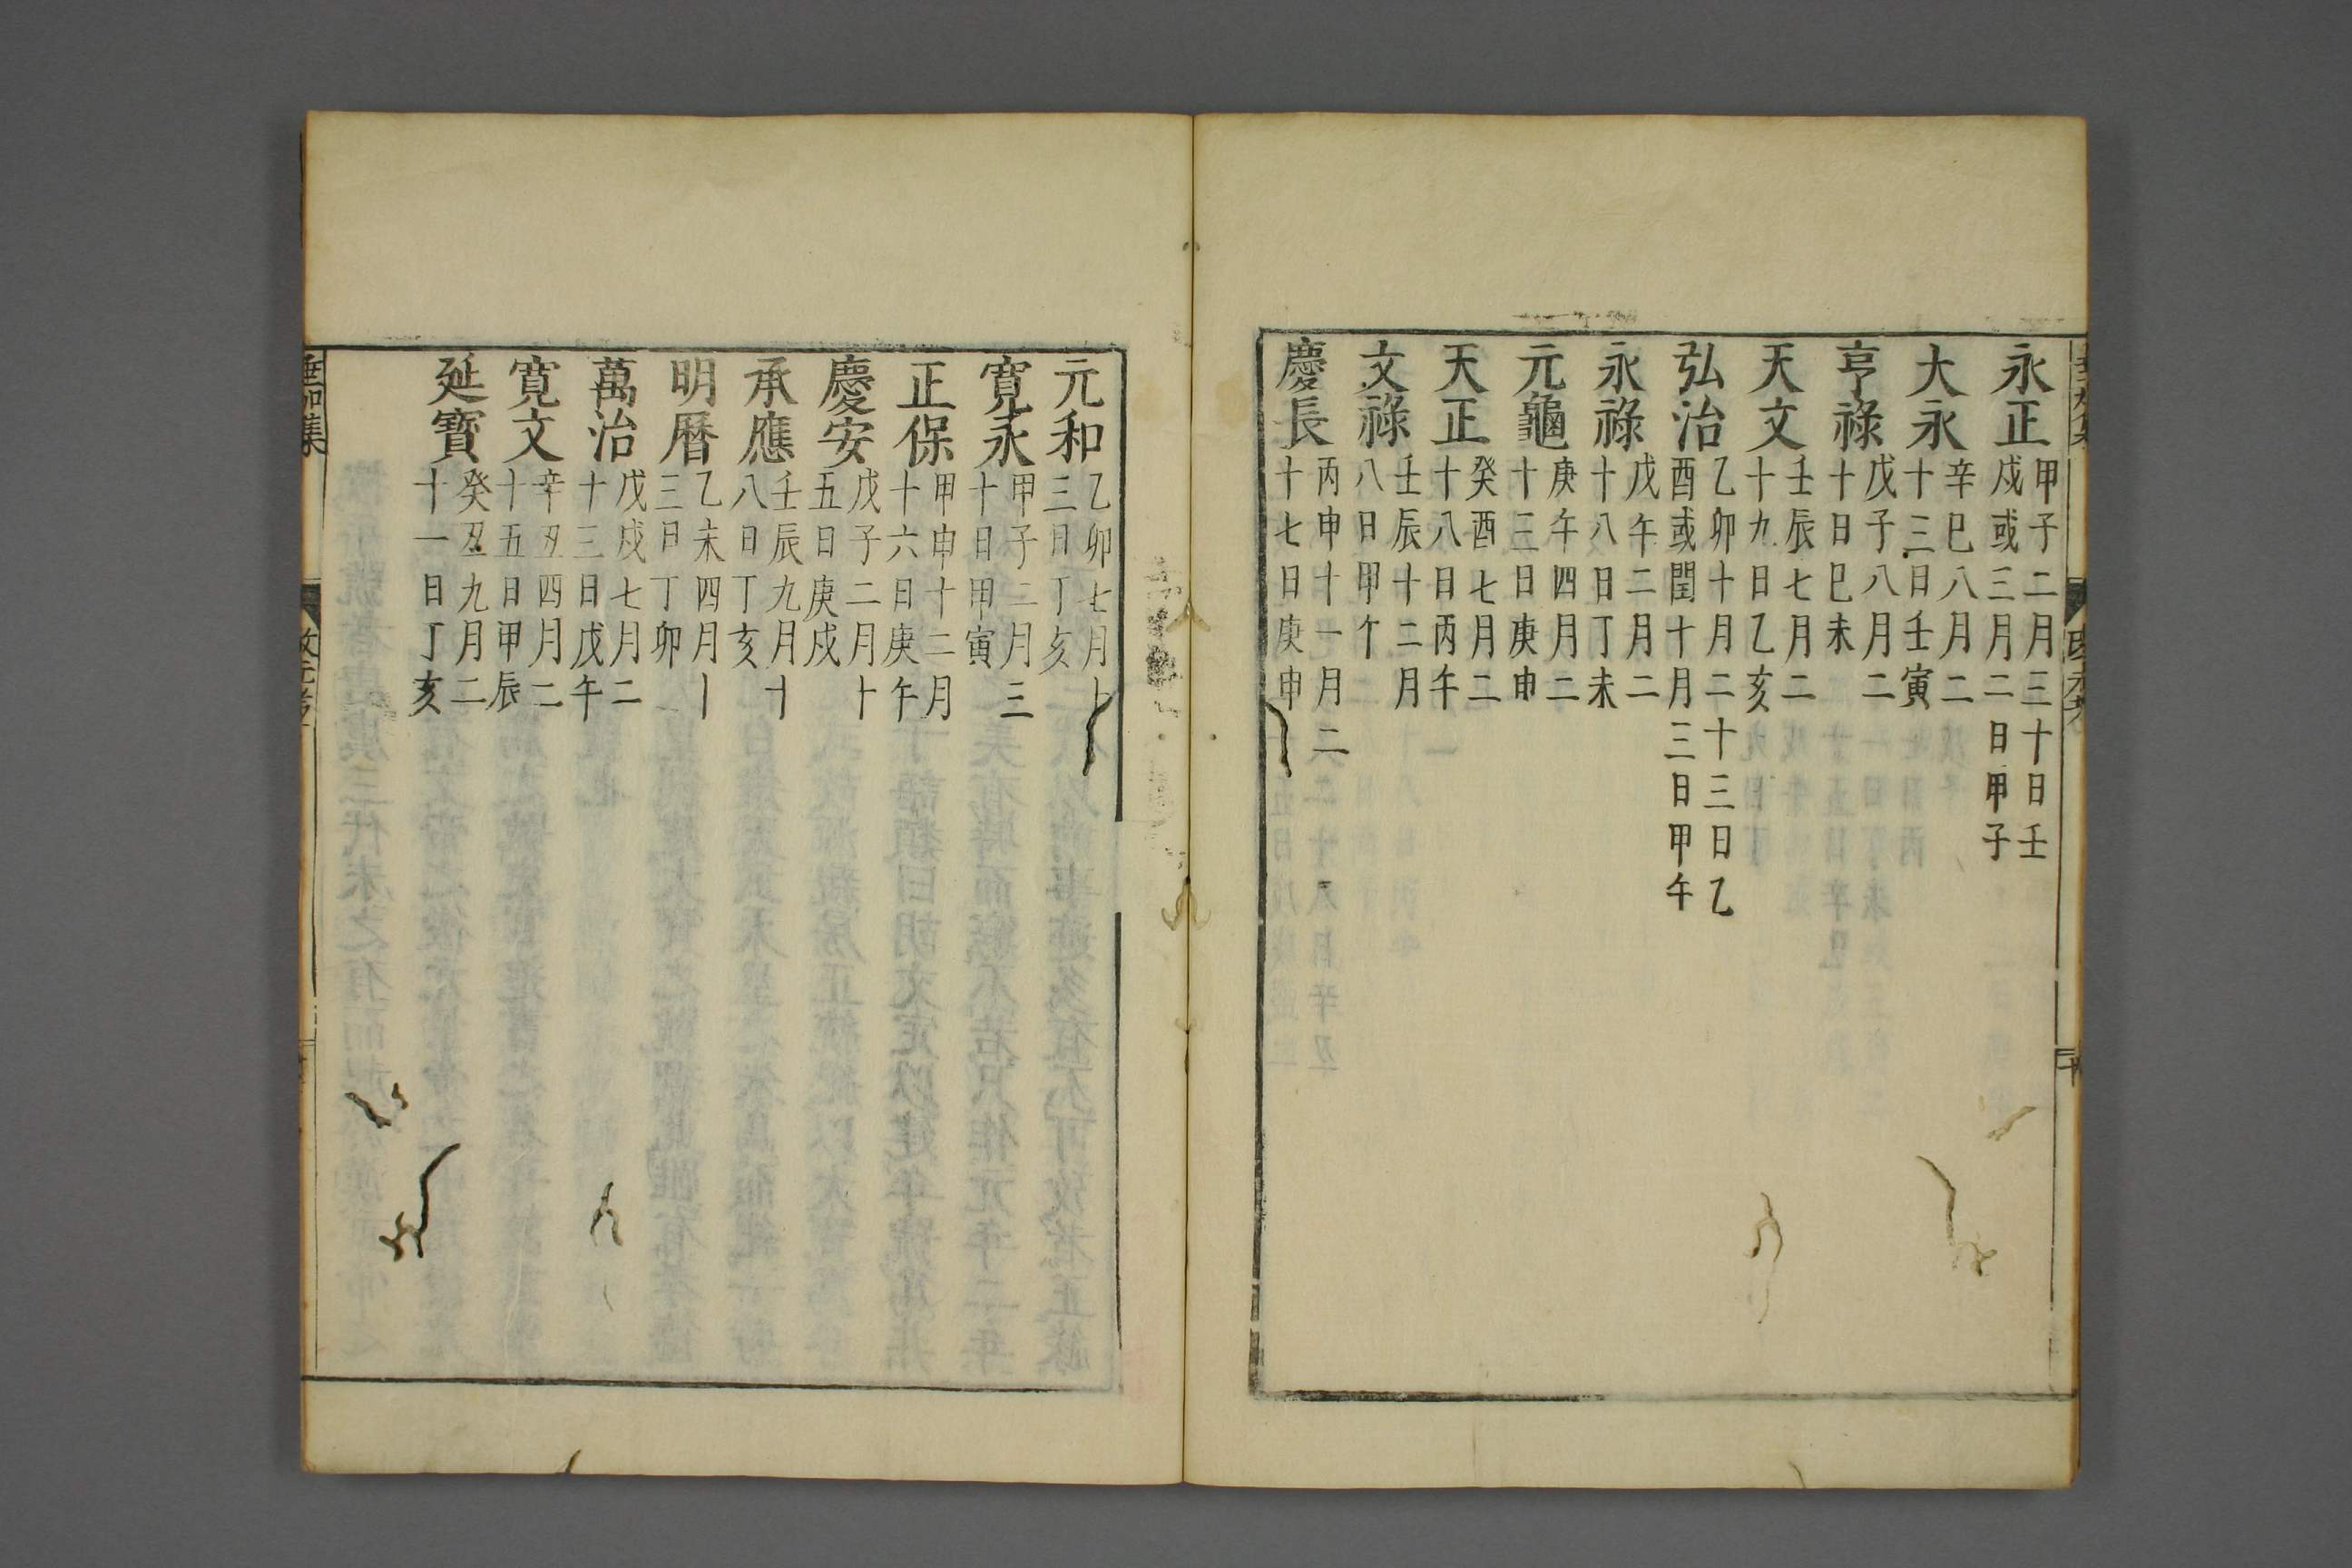 永正 甲子二月三十日壬戌或三月二日甲子
大永 辛巳八月二十三日壬寅
亨祿 戊子八月二十日巳未
天文 壬辰七月二十九日乙亥
弘治 乙卯十月二十三日乙酉或閏十月三日甲午
永祿 戊午二月二十八日丁未
元龜 庚午四月二十三日庚申
天正 癸酉七月二十八日丙午
文祿 壬辰十二月八日甲午
慶長 丙申十一月二十七日庚申
元和 乙卯七月十三日丁亥
寬永 甲子二月三十日甲寅
正保 甲申十二月十六日庚午
慶安 戊子二月十五日庚戌
承應 壬辰九月十八日丁亥
明曆 乙未四月十三日丁卯
萬治 戊戌七月二十三日戊午
寬文 辛丑四月二十五日甲辰
延寶 癸丑九月二十一日丁亥
垂加集 改元考